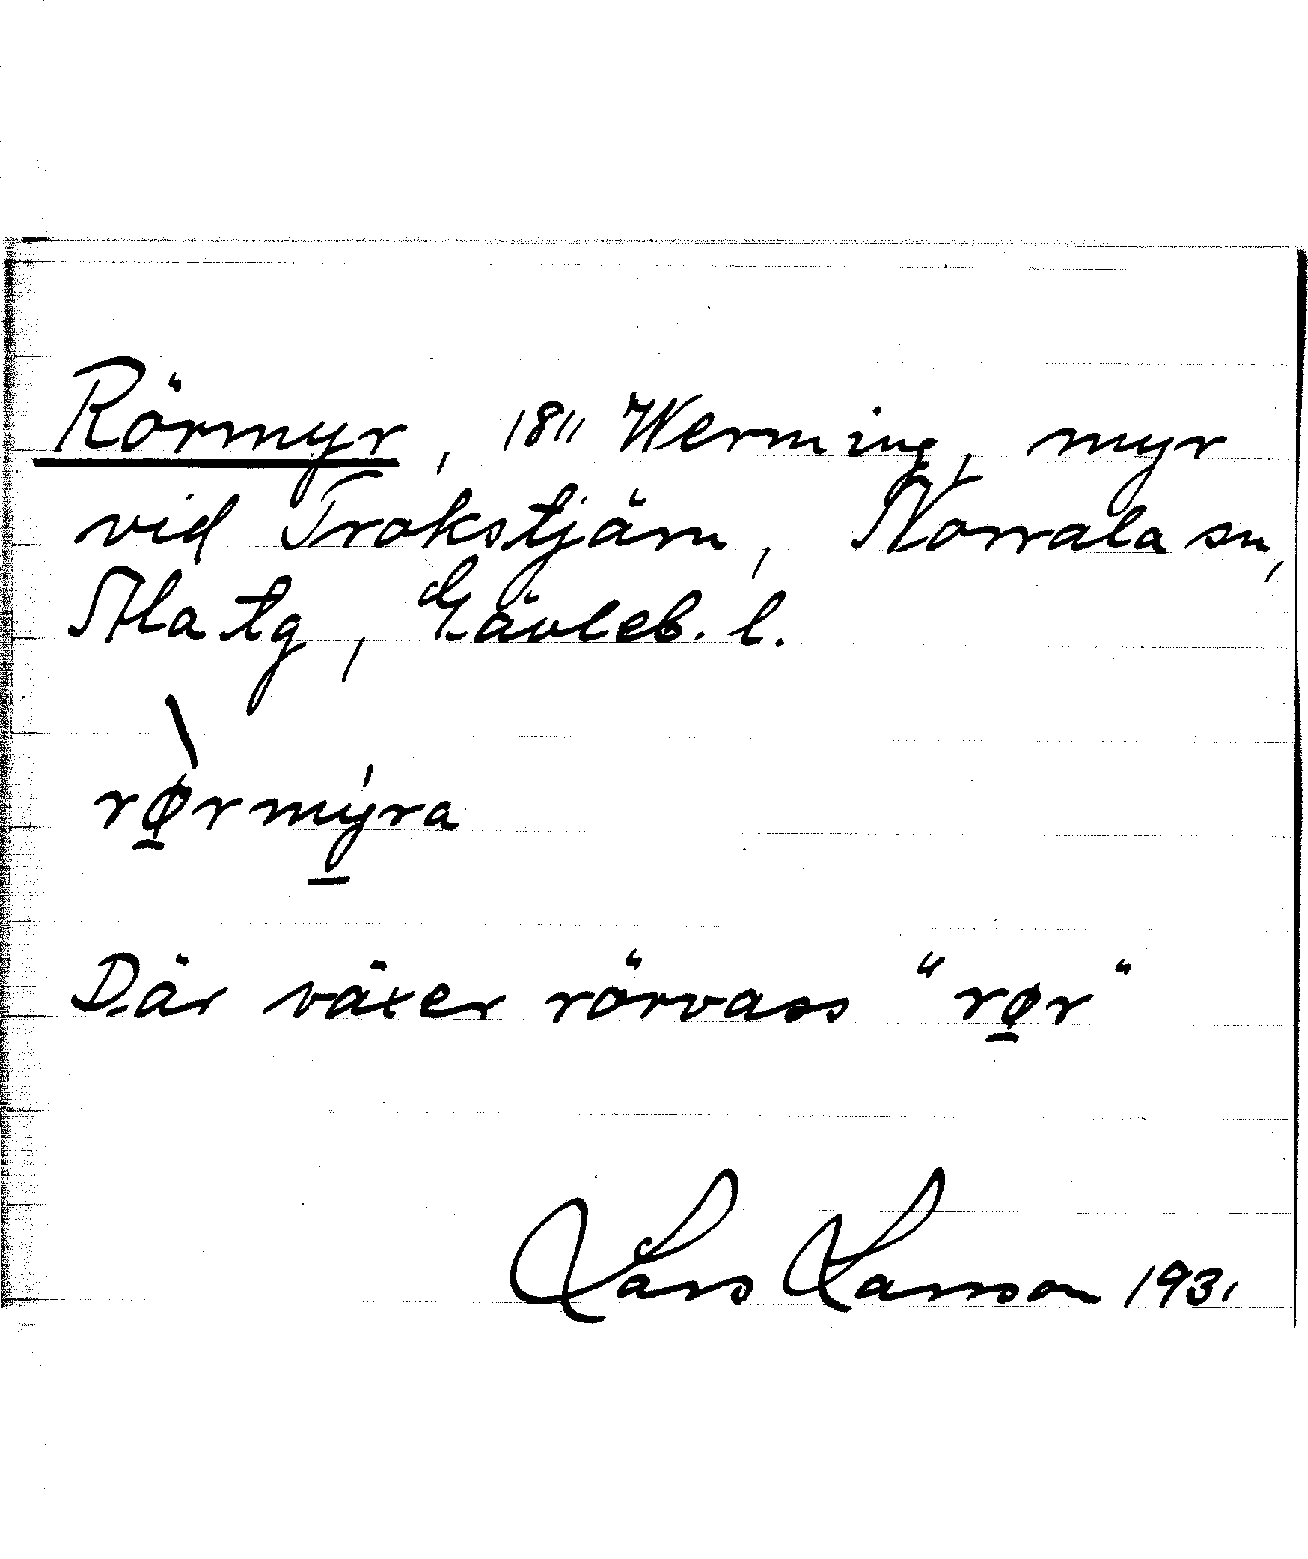 Rörmyr, 1811 Werming, myr
vid Trokstjärn, Norrala sn,
Ala tg, Gävleb. l.
rø̱̀rmý̱ra
Där växer rörvass "rø̱r"
Lars Larsson 1931